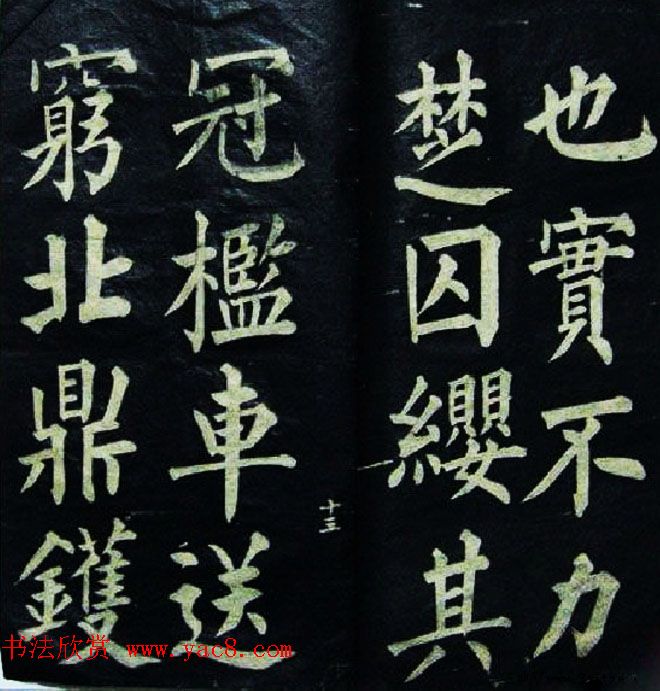 也實不力
楚囚纓其
十三
冠檻車送
窮北鼎鑊
书法欣赏 www.yac8.com